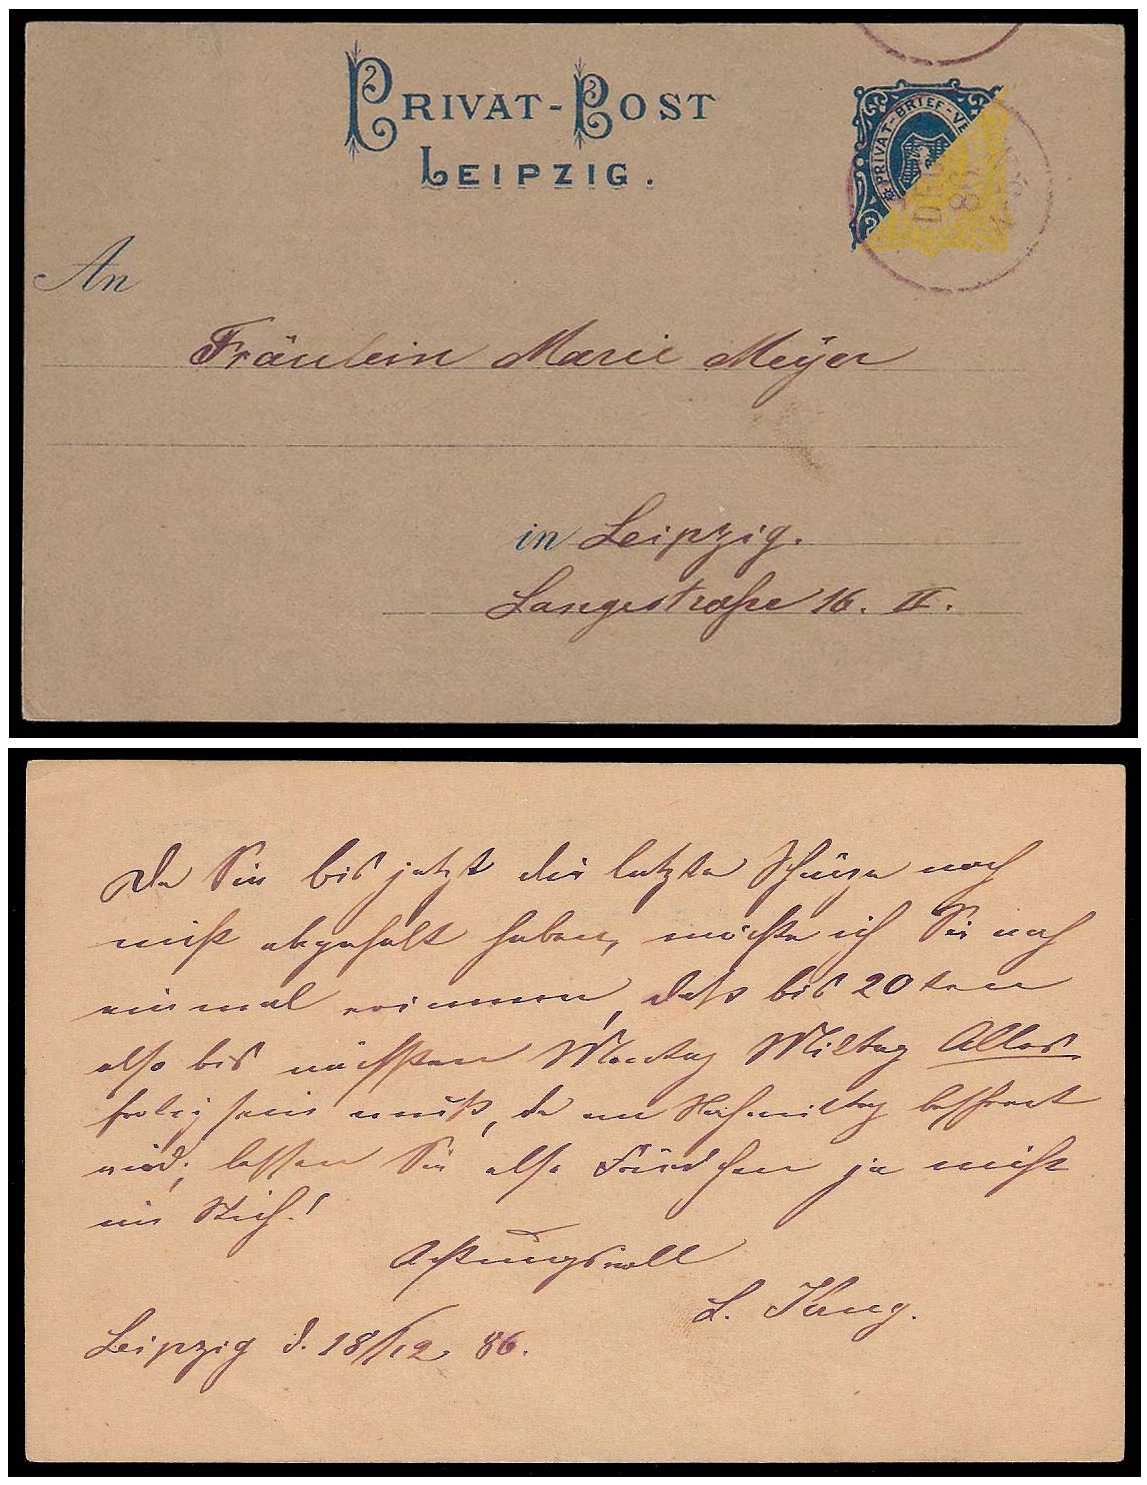 PRIVAT-POST
LEIPZIG.
PRIVAT-BRIEF-VE
DEC
86
An
Fräulein Marie Meyer
in Leipzig.
Langestraße 16. II.
Da Sie bis jetzt die letzte Schürze noch
nicht abgeholt haben, möchte ich Sie noch
einmal erinnern, daß bis 20ten
also bis nächsten Montag Mittag Alles
fertig sein muß, da am Nachmittag beschert
wird; lassen Sie also ja nicht
im Stich!
Achtungsvoll
L.
Leipzig d. 18/12. 86.